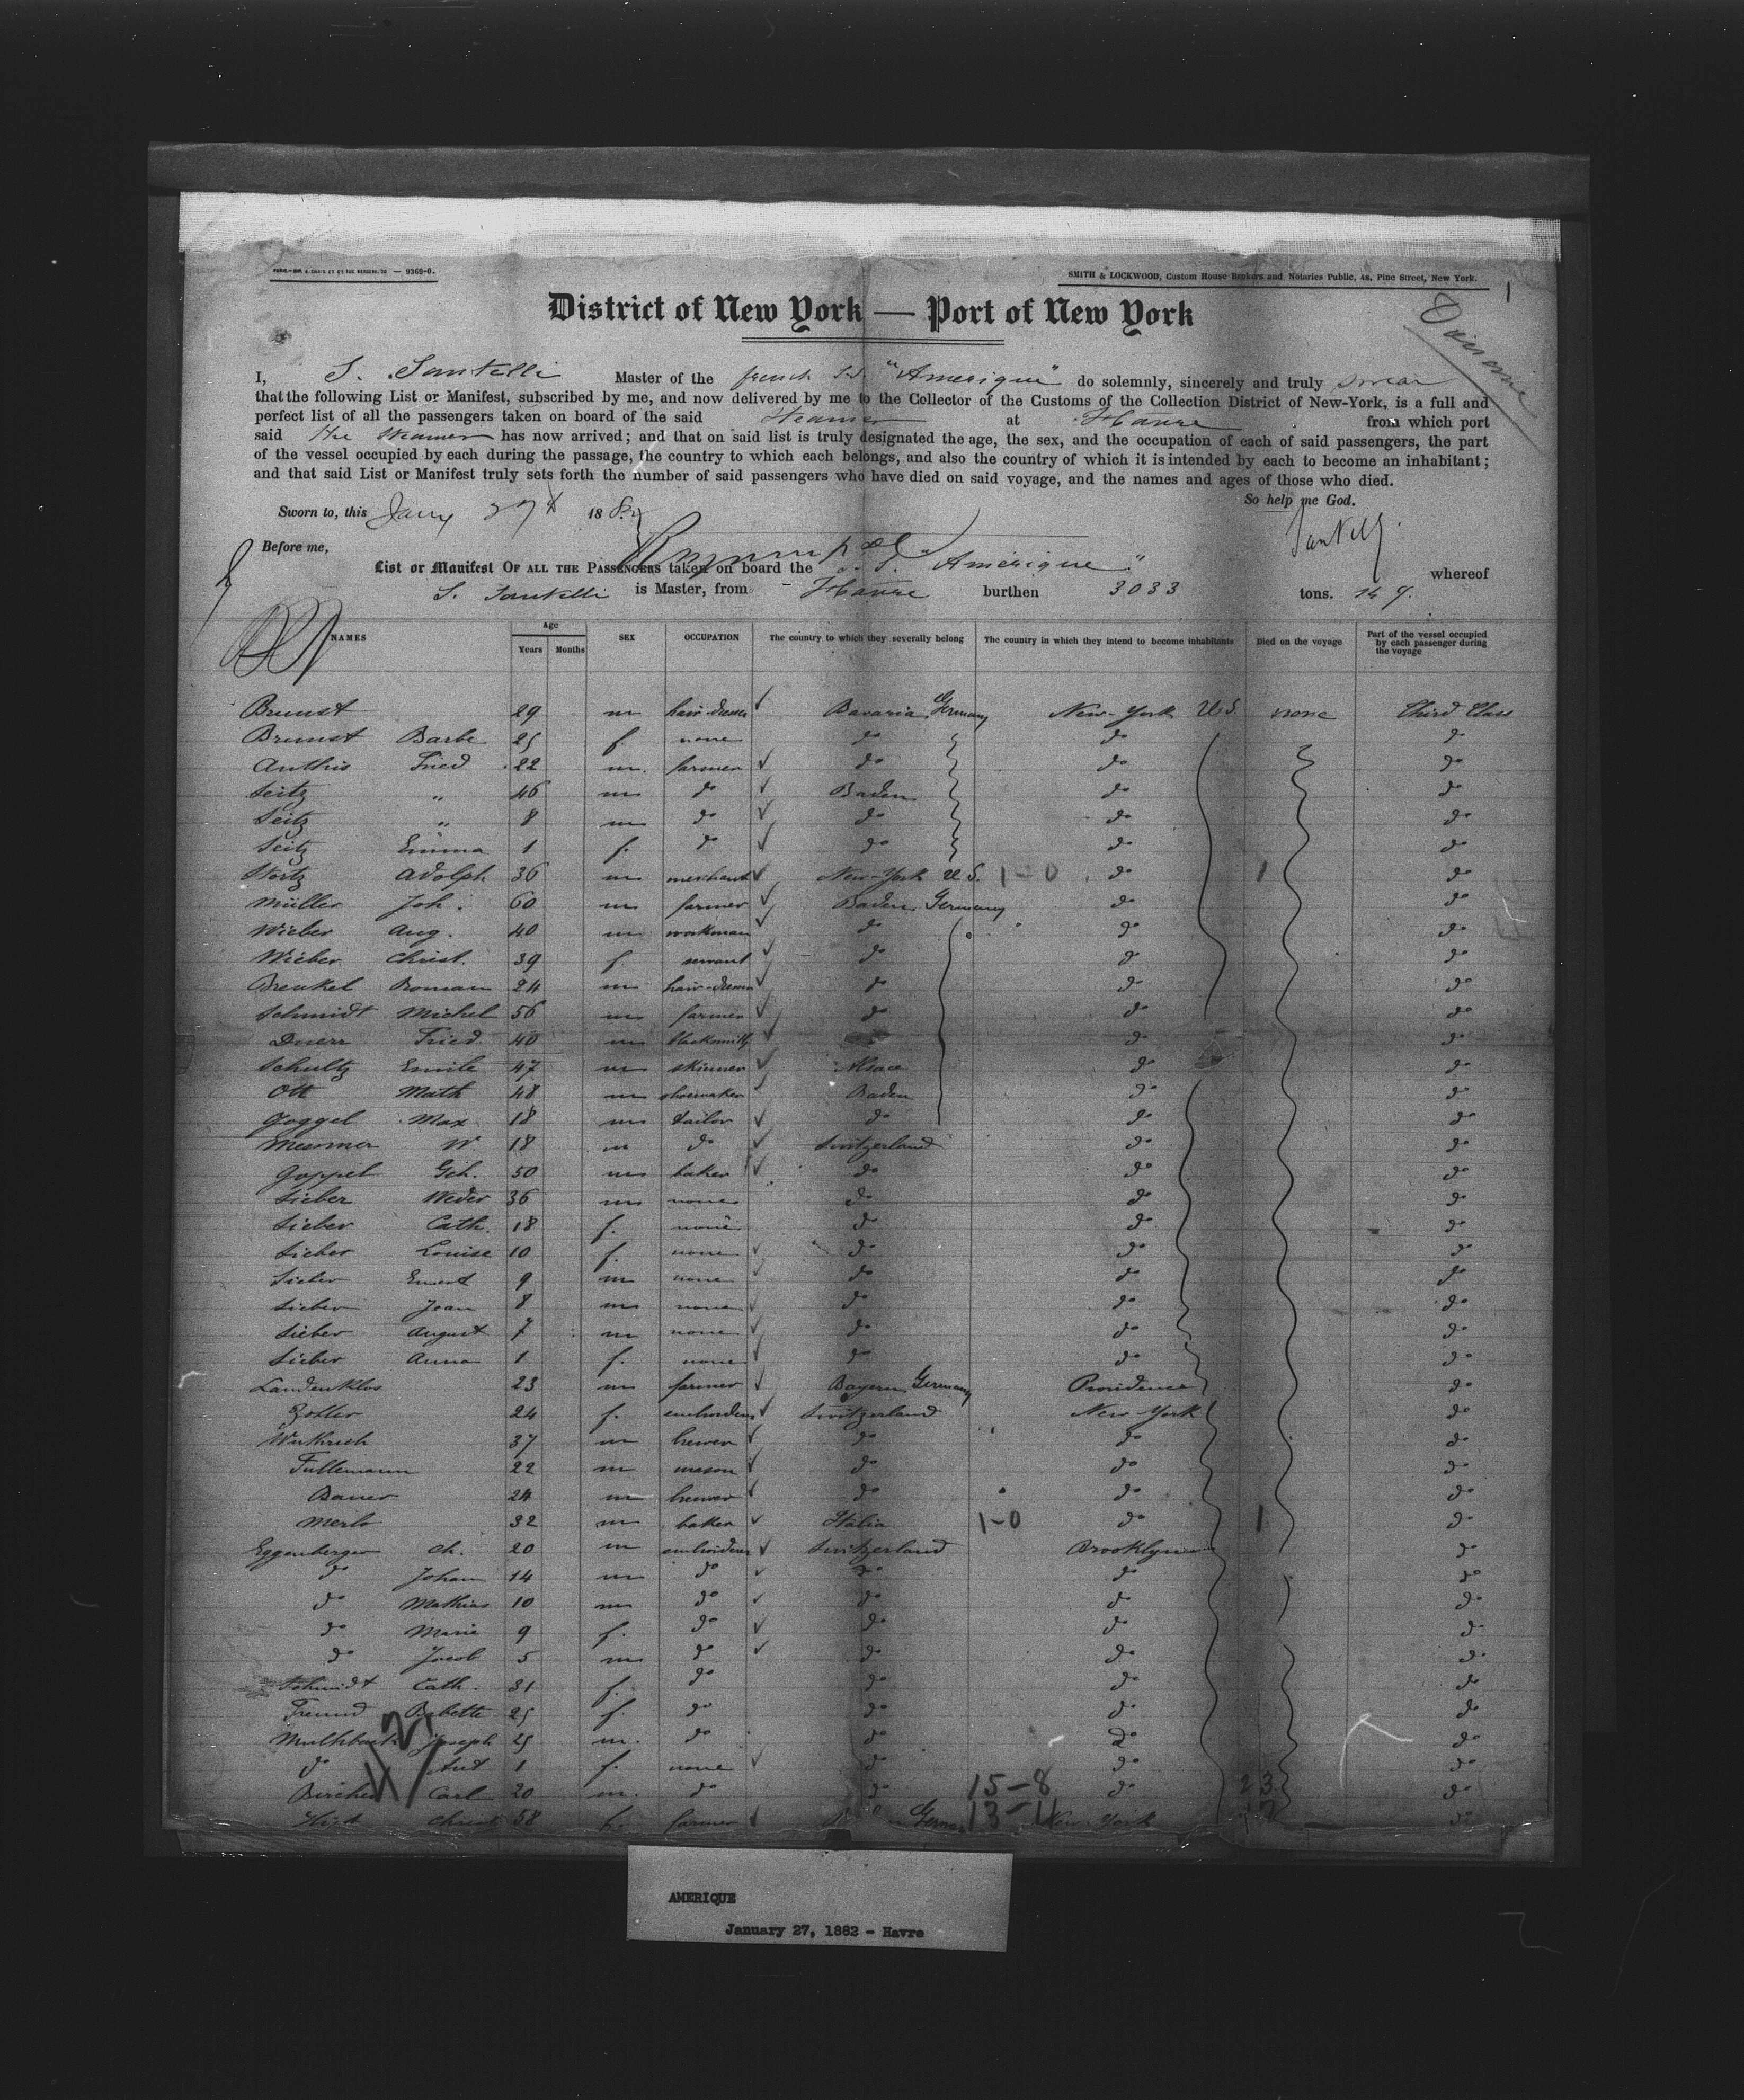 — 9369-0.
SMITH & LOCKWOOD, Custom House Brokers and Notaries Public, 48, Pine Street, New York.
1
District of New York — Port of New York
I, S. Santelli Master of the french S.S. "Amerique" do solemnly, sincerely and truly swear
that the following List or Manifest, subscribed by me, and now delivered by me to the Collector of the Customs of the Collection District of New-York, is a full and
perfect list of all the passengers taken on board of the said Steamer at Havre from which port
said the Steamer has now arrived; and that on said list is truly designated the age, the sex, and the occupation of each of said passengers, the part
of the vessel occupied by each during the passage, the country to which each belongs, and also the country of which it is intended by each to become an inhabitant;
and that said List or Manifest truly sets forth the number of said passengers who have died on said voyage, and the names and ages of those who died.
So help me God.
Sworn to, this Jany 27th 1882
Santelli
Before me,
List or Manifest OF ALL THE PASSENGERS taken on board the S.S. Amérique." whereof
S. Santelli is Master, from Havre burthen 3033 tons.
NAMES Age Years Months SEX OCCUPATION The country to which they severally belong The country in which they intend to become inhabitants Died on the voyage Part of the vessel occupied by each passenger during the voyage
Brunst 29 m hair-dresser Bavaria Germany New-York U.S. none Third Class
Brunst Barbe 25 f. none do do do
Anthis Fried 22 m. farmer do do do
Seitz " 46 m do Baden do do
Seitz " 8 m do do do do
Seitz Emma 1 f. do do do do
Stortz Adolph 36 m merchant New-York U.S. 1-0 do 1 do
Müller Joh. 60 m farmer Baden Germany do do
Wieber Aug. 40 m workman do do do
Wieber Christ. 39 f. servant do do do
Brenkel Roman 24 m hair-dresser do do do
Schmidt Michel 56 m farmer do do do
Duerr Fried 40 m blacksmith do do
Schultz Emile 47 m skinner Alsace do do
Ott Math 48 m shoemaker Baden do do
Goggel Max 18 m tailor do do do
Mesmer W. 18 m do Switzerland do do
Goppel Geh. 50 m baker do do do
Sieber Weder 36 m none do do do
Sieber Cath. 18 f. none do do do
Sieber Louise 10 f. none do do do
Sieber Ernest 9 m none do do do
Sieber Jean 8 m none do do do
Sieber August 7 m none do do do
Sieber Anna 1 f. none do do do
Landenklos 23 m farmer Bayern Germany Providence do
Zoller 24 f. Switzerland New-York do
Wuthrich 37 m brewer do do do
Fullemann 22 m mason do do do
Bauer 24 m brewer do do do
Merlo 32 m baker Italia 1-0 do 1 do
Eggenberger Ch. 20 m Switzerland Brooklyn do
do Johan 14 m do do do do
do Mathias 10 m do do do do
do Marie 9 f. do do do do
do Jacob 5 m do do do do
Schmidt Cath. 31 f. do do do do
Freund Babette 25 f. do do do do
Joseph 25 m. do do do do
do 1 f. none do do do
Carl 20 m. do do 15-8 do 23 do
Christ 58 f. farmer New-York do
AMERIQUE
January 27, 1882 - Havre